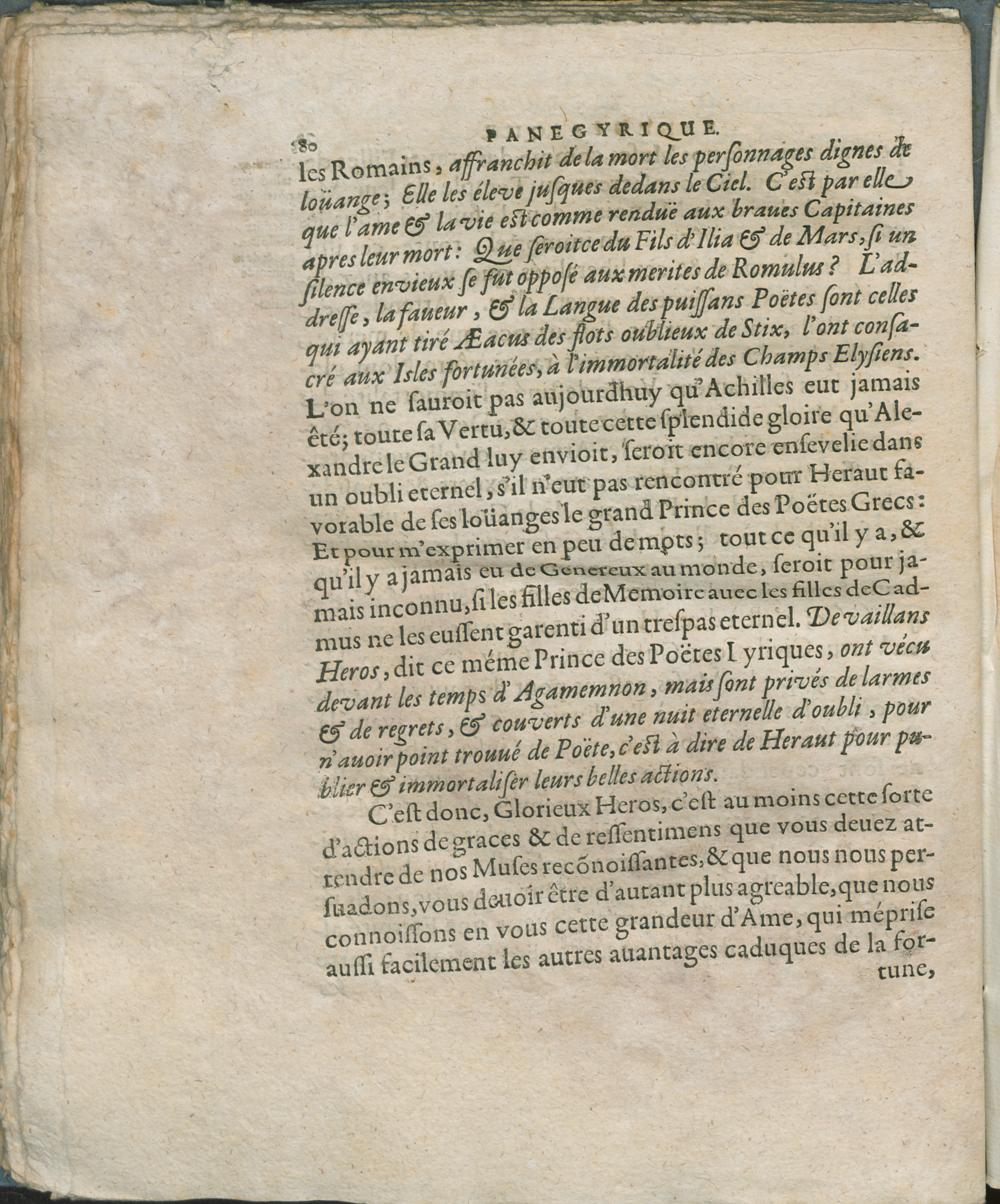 80 PANEGYRIQUE.
les Romains, affranchit de la mort les perſonnages dignes de
loüange; Elle les éleve juſques dedans le Ciel. C'eſt par elle
que l'ame & la vie eſt comme renduë aux braues Capitaines
apres leur mort: Que ſeroitce du Fils d'Ilia & de Mars, ſi un
ſilence envieux ſe fut oppoſé aux merites de Romulus? L'ad-
dreſſe, la faueur, & la Langue des puiſſans Poëtes ſont celles
qui ayant tiré Æacus des flots oublieux de Stix, l'ont conſa-
cré aux Isles fortunées, à l'immortalité des Champs Elyſiens.
L'on ne ſauroit pas aujourdhuy qu'Achilles eut jamais
êté; toute ſa Vertu, & toute cette ſplendide gloire qu'Ale-
xandre le Grand luy envioit, ſeroit encore enſevelie dans
un oubli eternel, s'il n'eut pas rencontré pour Heraut fa-
vorable de ſes loüanges le grand Prince des Poëtes Grecs:
Et pour m'exprimer en peu de mots; tout ce qu'il y a, &
qu'il y a jamais eu de Genereux au monde, ſeroit pour ja-
mais inconnu, ſi les filles de Memoire auec les filles de Cad-
mus ne les euſſent garenti d'un treſpas eternel. De vaillans
Heros, dit ce méme Prince des Poëtes Lyriques, ont vécu
devant les temps d'Agamemnon, mais ſont privés de larmes
& de regrets, & couverts d'une nuit eternelle d'oubli, pour
n'auoir point trouué de Poëte, c'eſt à dire de Heraut pour pu-
blier & immortaliſer leurs belles actions.
C'eſt donc, Glorieux Heros, c'eſt au moins cette ſorte
d'actions de graces & de reſſentimens que vous deuez at-
tendre de nos Muſes recõnoiſſantes, & que nous nous per-
ſuadons, vous deuoir être d'autant plus agreable, que nous
connoiſſons en vous cette grandeur d'Ame, qui mépriſe
auſſi facilement les autres auantages caduques de la for-
tune,